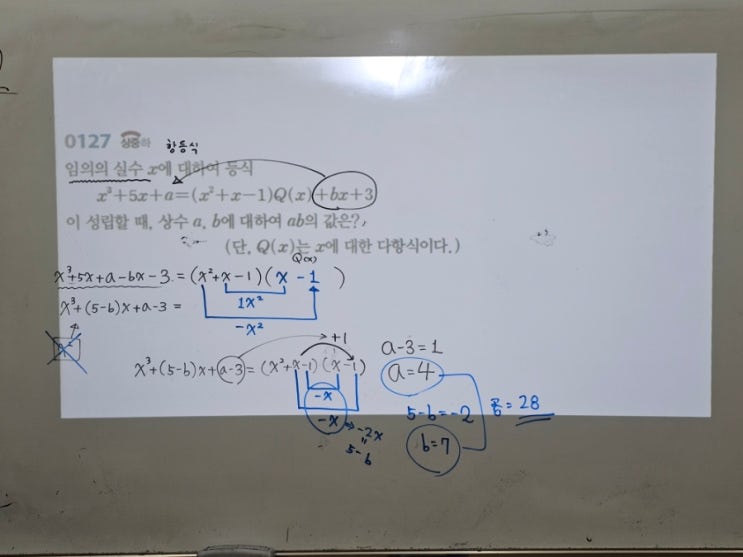 0127 상중하 항등식
임의의 실수 x에 대하여 등식
x³+5x+a=(x²+x-1)Q(x)+bx+3
이 성립할 때, 상수 a, b에 대하여 ab의 값은?
(단, Q(x)는 x에 대한 다항식이다.)
Q(x)
x³+5x+a-bx-3 = (x²+x-1)(x-1)
1x²
x³+(5-b)x+a-3 =
-x²
+1
x³+(5-b)x+a-3 = (x²+x-1)(x-1)
-x
-x → -2x
=
5-b
a-3=1
a=4
5-b=-2
b=7
= 28